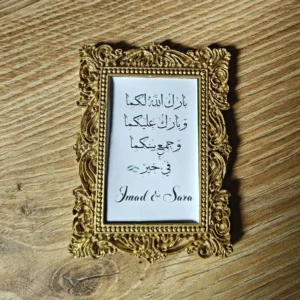 بارك الله لكما
وبارك عليكما
وجمع بينكما
في خير
Imad & Sara